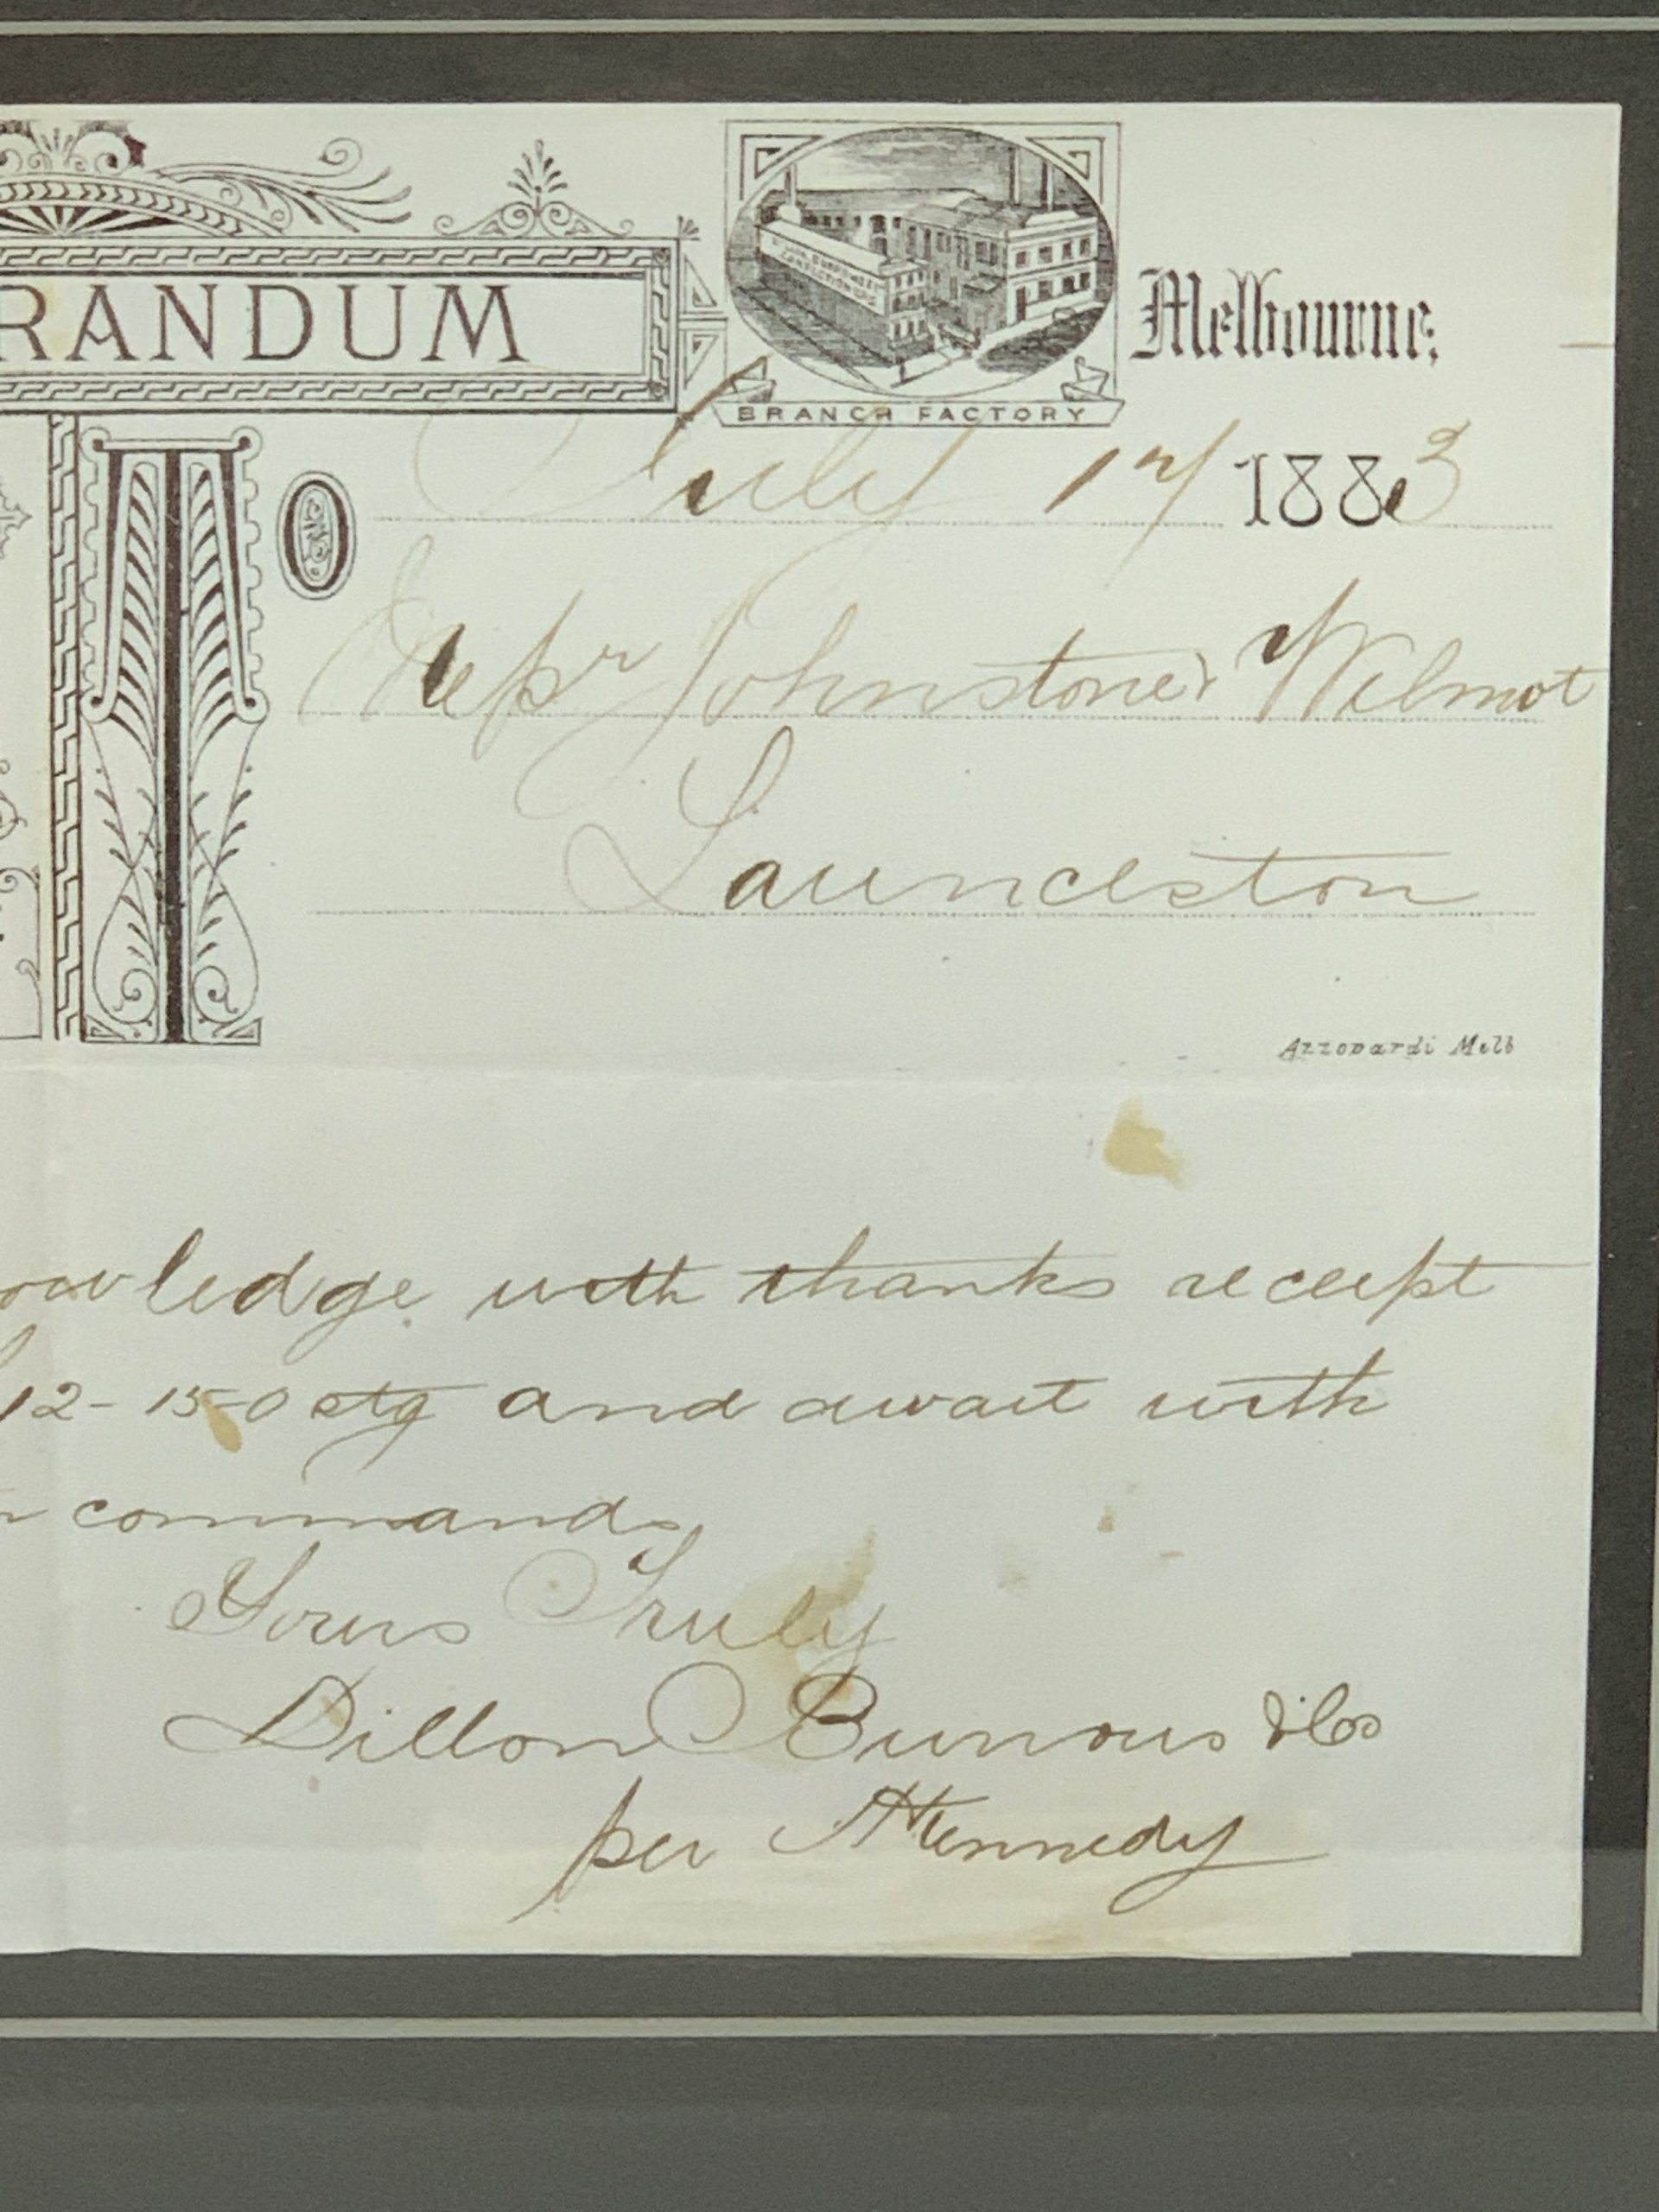 RANDUM
DILLON, BURROWS & Co
CONFECTIONERS
BRANCH FACTORY
Melbourne,
July 17 1883
TO
Messrs Johnstone & Wilmot
Launceston
Azzopardi Melb
owledge with thanks receipt
12-15-0 stg and await with
commands
Yours Truly
Dillon Burrows & Co
per Kennedy